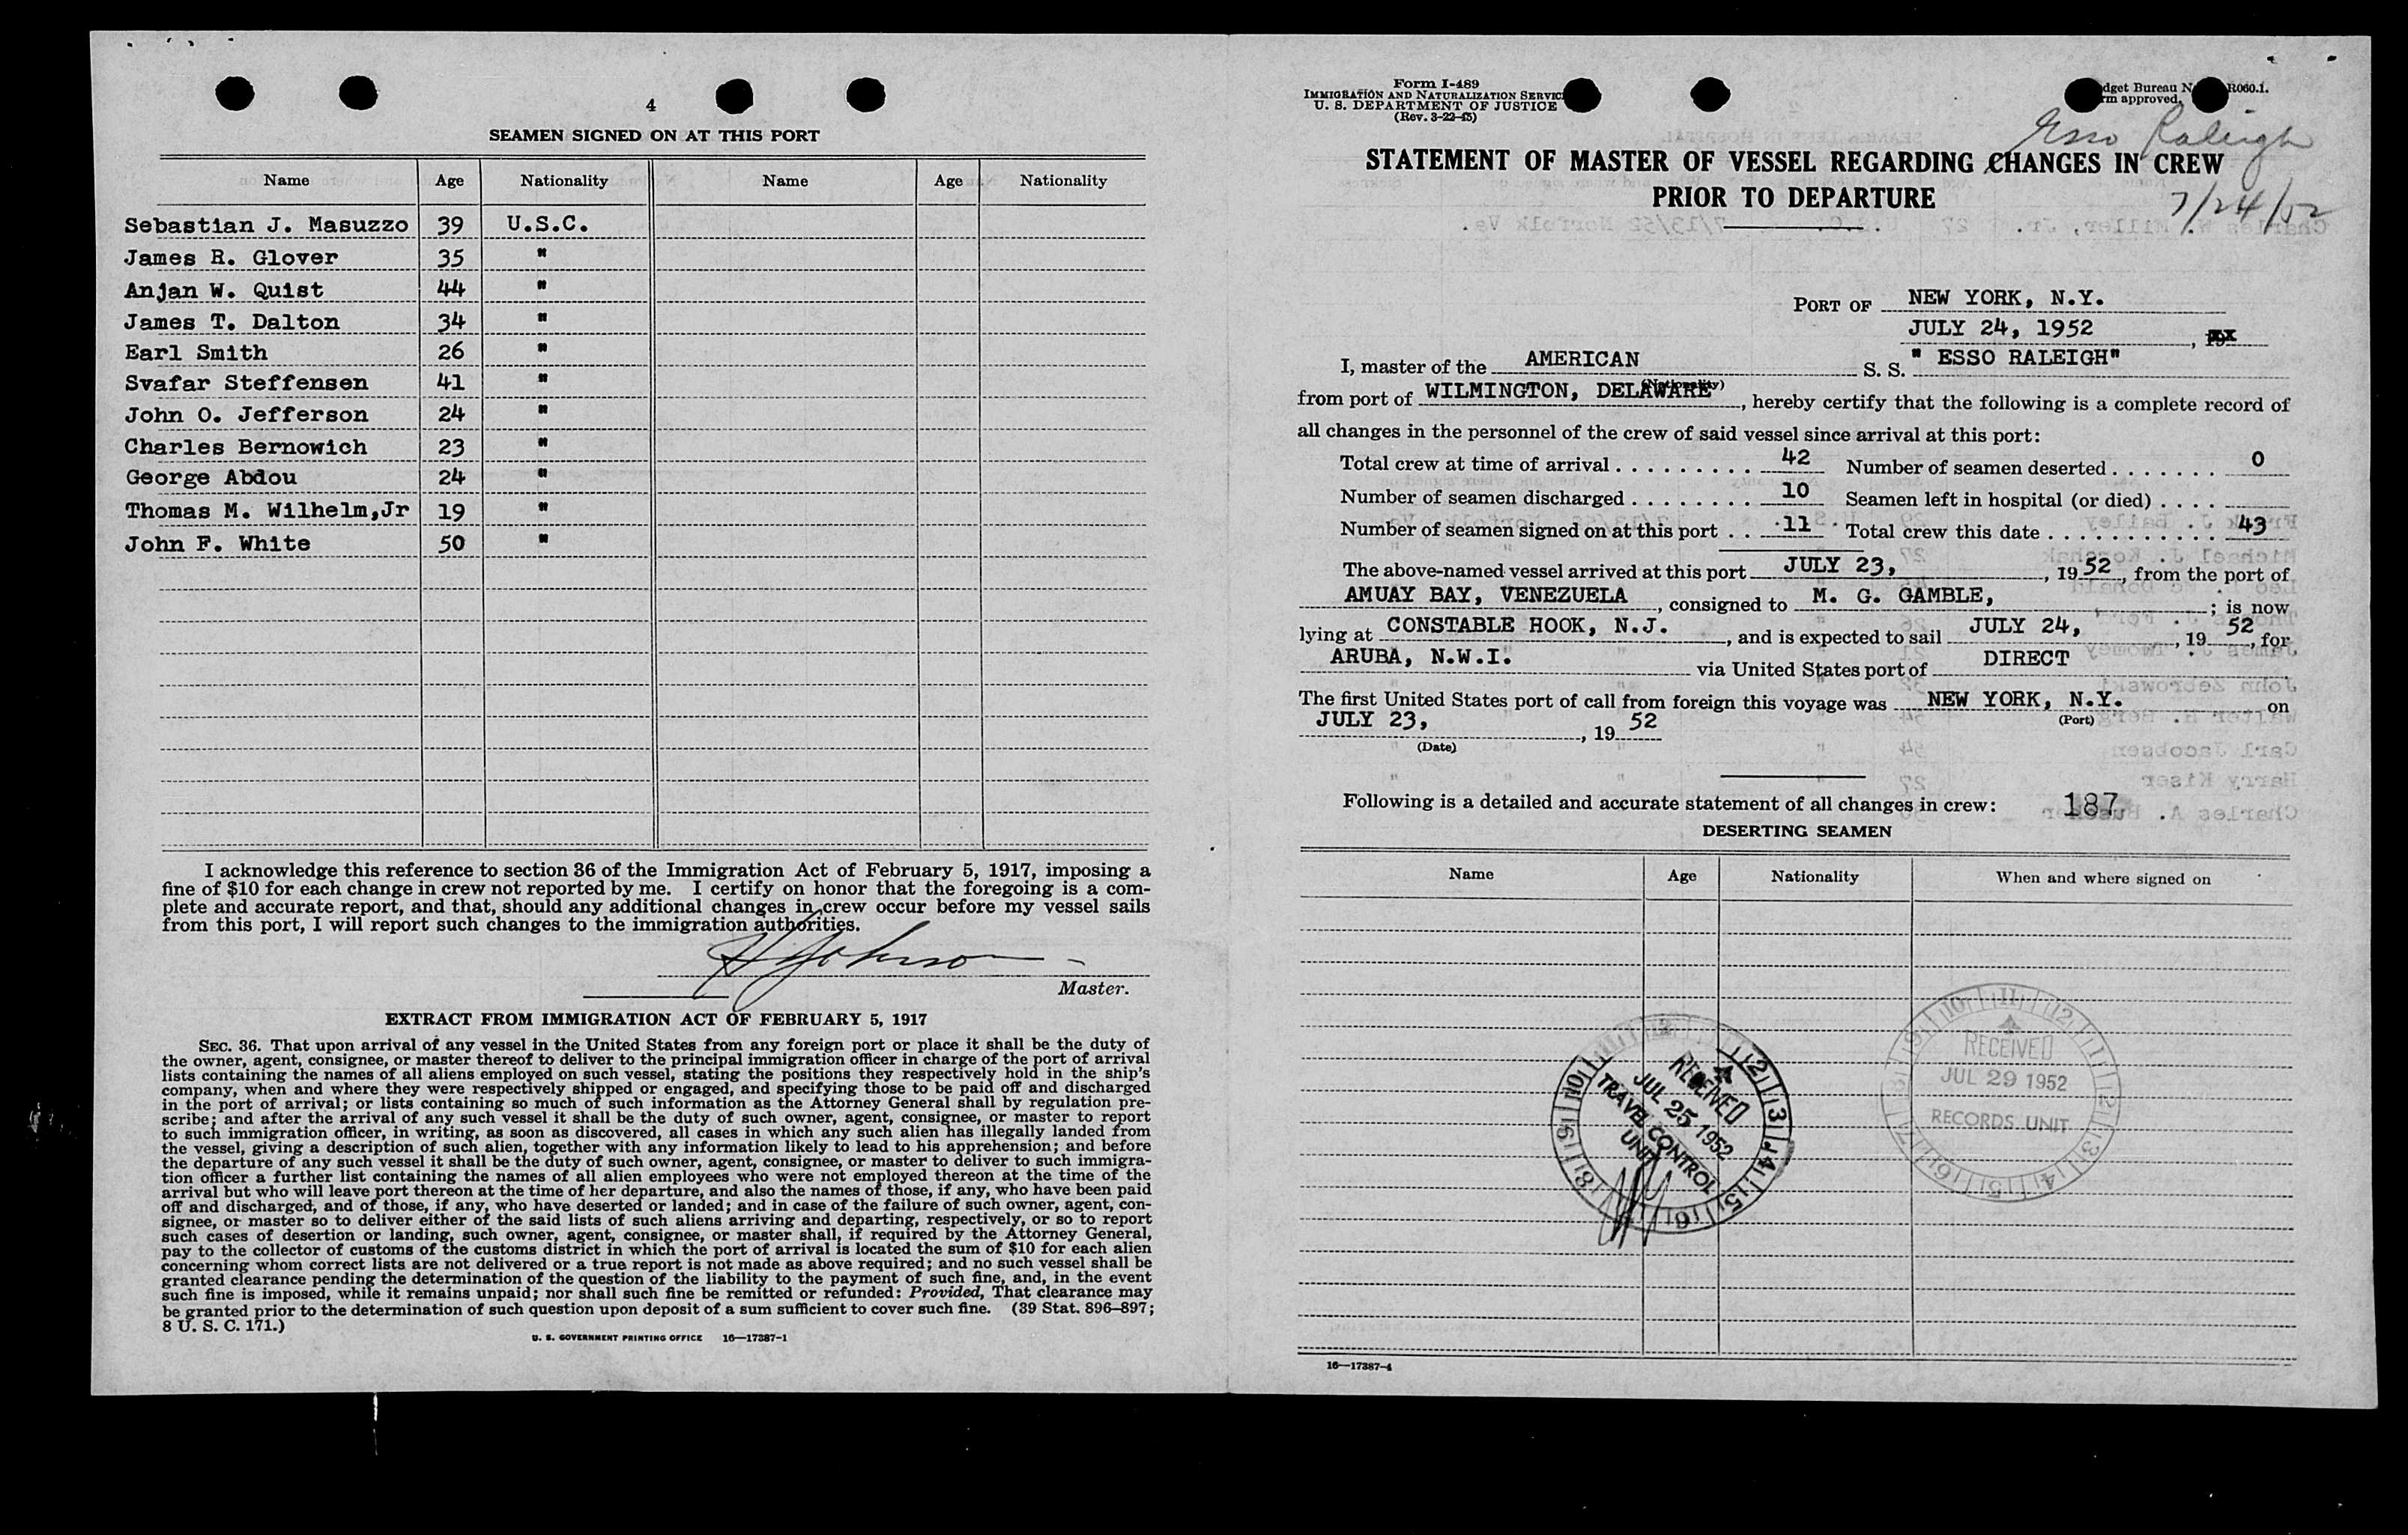 4
SEAMEN SIGNED ON AT THIS PORT
Name Age Nationality Name Age Nationality
Sebastian J. Masuzzo 39 U.S.C.
James R. Glover 35 "
Anjan W. Quist 44 "
James T. Dalton 34 "
Earl Smith 26 "
Svafar Steffensen 41 "
John O. Jefferson 24 "
Charles Bernowich 23 "
George Abdou 24 "
Thomas M. Wilhelm,Jr 19 "
John F. White 50 "
I acknowledge this reference to section 36 of the Immigration Act of February 5, 1917, imposing a
fine of $10 for each change in crew not reported by me. I certify on honor that the foregoing is a com-
plete and accurate report, and that, should any additional changes in crew occur before my vessel sails
from this port, I will report such changes to the immigration authorities.
H Johnson
Master.
EXTRACT FROM IMMIGRATION ACT OF FEBRUARY 5, 1917
SEC. 36. That upon arrival of any vessel in the United States from any foreign port or place it shall be the duty of
the owner, agent, consignee, or master thereof to deliver to the principal immigration officer in charge of the port of arrival
lists containing the names of all aliens employed on such vessel, stating the positions they respectively hold in the ship's
company, when and where they were respectively shipped or engaged, and specifying those to be paid off and discharged
in the port of arrival; or lists containing so much of such information as the Attorney General shall by regulation pre-
scribe; and after the arrival of any such vessel it shall be the duty of such owner, agent, consignee, or master to report
to such immigration officer, in writing, as soon as discovered, all cases in which any such alien has illegally landed from
the vessel, giving a description of such alien, together with any information likely to lead to his apprehension; and before
the departure of any such vessel it shall be the duty of such owner, agent, consignee, or master to deliver to such immigra-
tion officer a further list containing the names of all alien employees who were not employed thereon at the time of the
arrival but who will leave port thereon at the time of her departure, and also the names of those, if any, who have been paid
off and discharged, and of those, if any, who have deserted or landed; and in case of the failure of such owner, agent, con-
signee, or master so to deliver either of the said lists of such aliens arriving and departing, respectively, or so to report
such cases of desertion or landing, such owner, agent, consignee, or master shall, if required by the Attorney General,
pay to the collector of customs of the customs district in which the port of arrival is located the sum of $10 for each alien
concerning whom correct lists are not delivered or a true report is not made as above required; and no such vessel shall be
granted clearance pending the determination of the question of the liability to the payment of such fine, and, in the event
such fine is imposed, while it remains unpaid; nor shall such fine be remitted or refunded: Provided, That clearance may
be granted prior to the determination of such question upon deposit of a sum sufficient to cover such fine. (39 Stat. 896–897;
8 U. S. C. 171.)
U. S. GOVERNMENT PRINTING OFFICE 16—17387-1
Form I-489
IMMIGRATION AND NATURALIZATION SERVIC
U. S. DEPARTMENT OF JUSTICE
(Rev. 3-22-45)
dget Bureau N R060.1.
rm approved.
Esso Raleigh
STATEMENT OF MASTER OF VESSEL REGARDING CHANGES IN CREW
PRIOR TO DEPARTURE
7/24/52
PORT OF NEW YORK, N.Y.
JULY 24, 1952 , 19
I, master of the AMERICAN S. S. " ESSO RALEIGH"
(Nationality)
from port of WILMINGTON, DELAWARE , hereby certify that the following is a complete record of
all changes in the personnel of the crew of said vessel since arrival at this port:
Total crew at time of arrival . . . . . . . . . 42 Number of seamen deserted . . . . . . . 0
Number of seamen discharged . . . . . . . . 10 Seamen left in hospital (or died) . . . .
Number of seamen signed on at this port . . 11 Total crew this date . . . . . . . . . . . 43
The above-named vessel arrived at this port JULY 23, , 19 52 , from the port of
AMUAY BAY, VENEZUELA , consigned to M. G. GAMBLE, ; is now
lying at CONSTABLE HOOK, N.J. , and is expected to sail JULY 24, , 19 52 , for
ARUBA, N.W.I. via United States port of DIRECT
The first United States port of call from foreign this voyage was NEW YORK, N.Y. on
(Port)
JULY 23, , 19 52
(Date)
Following is a detailed and accurate statement of all changes in crew: 187
DESERTING SEAMEN
Name Age Nationality When and where signed on
RECEIVED
JUL 25 1952
TRAVEL CONTROL
UNIT
RECEIVED
JUL 29 1952
RECORDS UNIT
16—17387-4